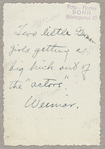 Two little German
girls getting a
big kick out of
the "actors".
Weimar.